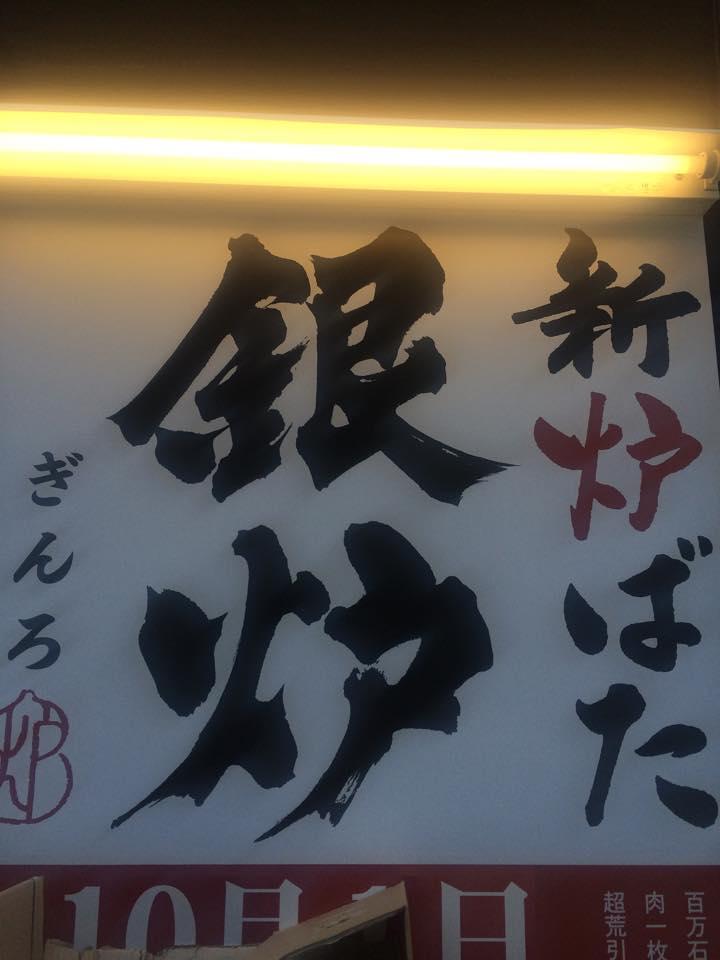 新炉ばた
銀炉
ぎんろ
炉
10月1日
百万石
肉一枚
超荒引